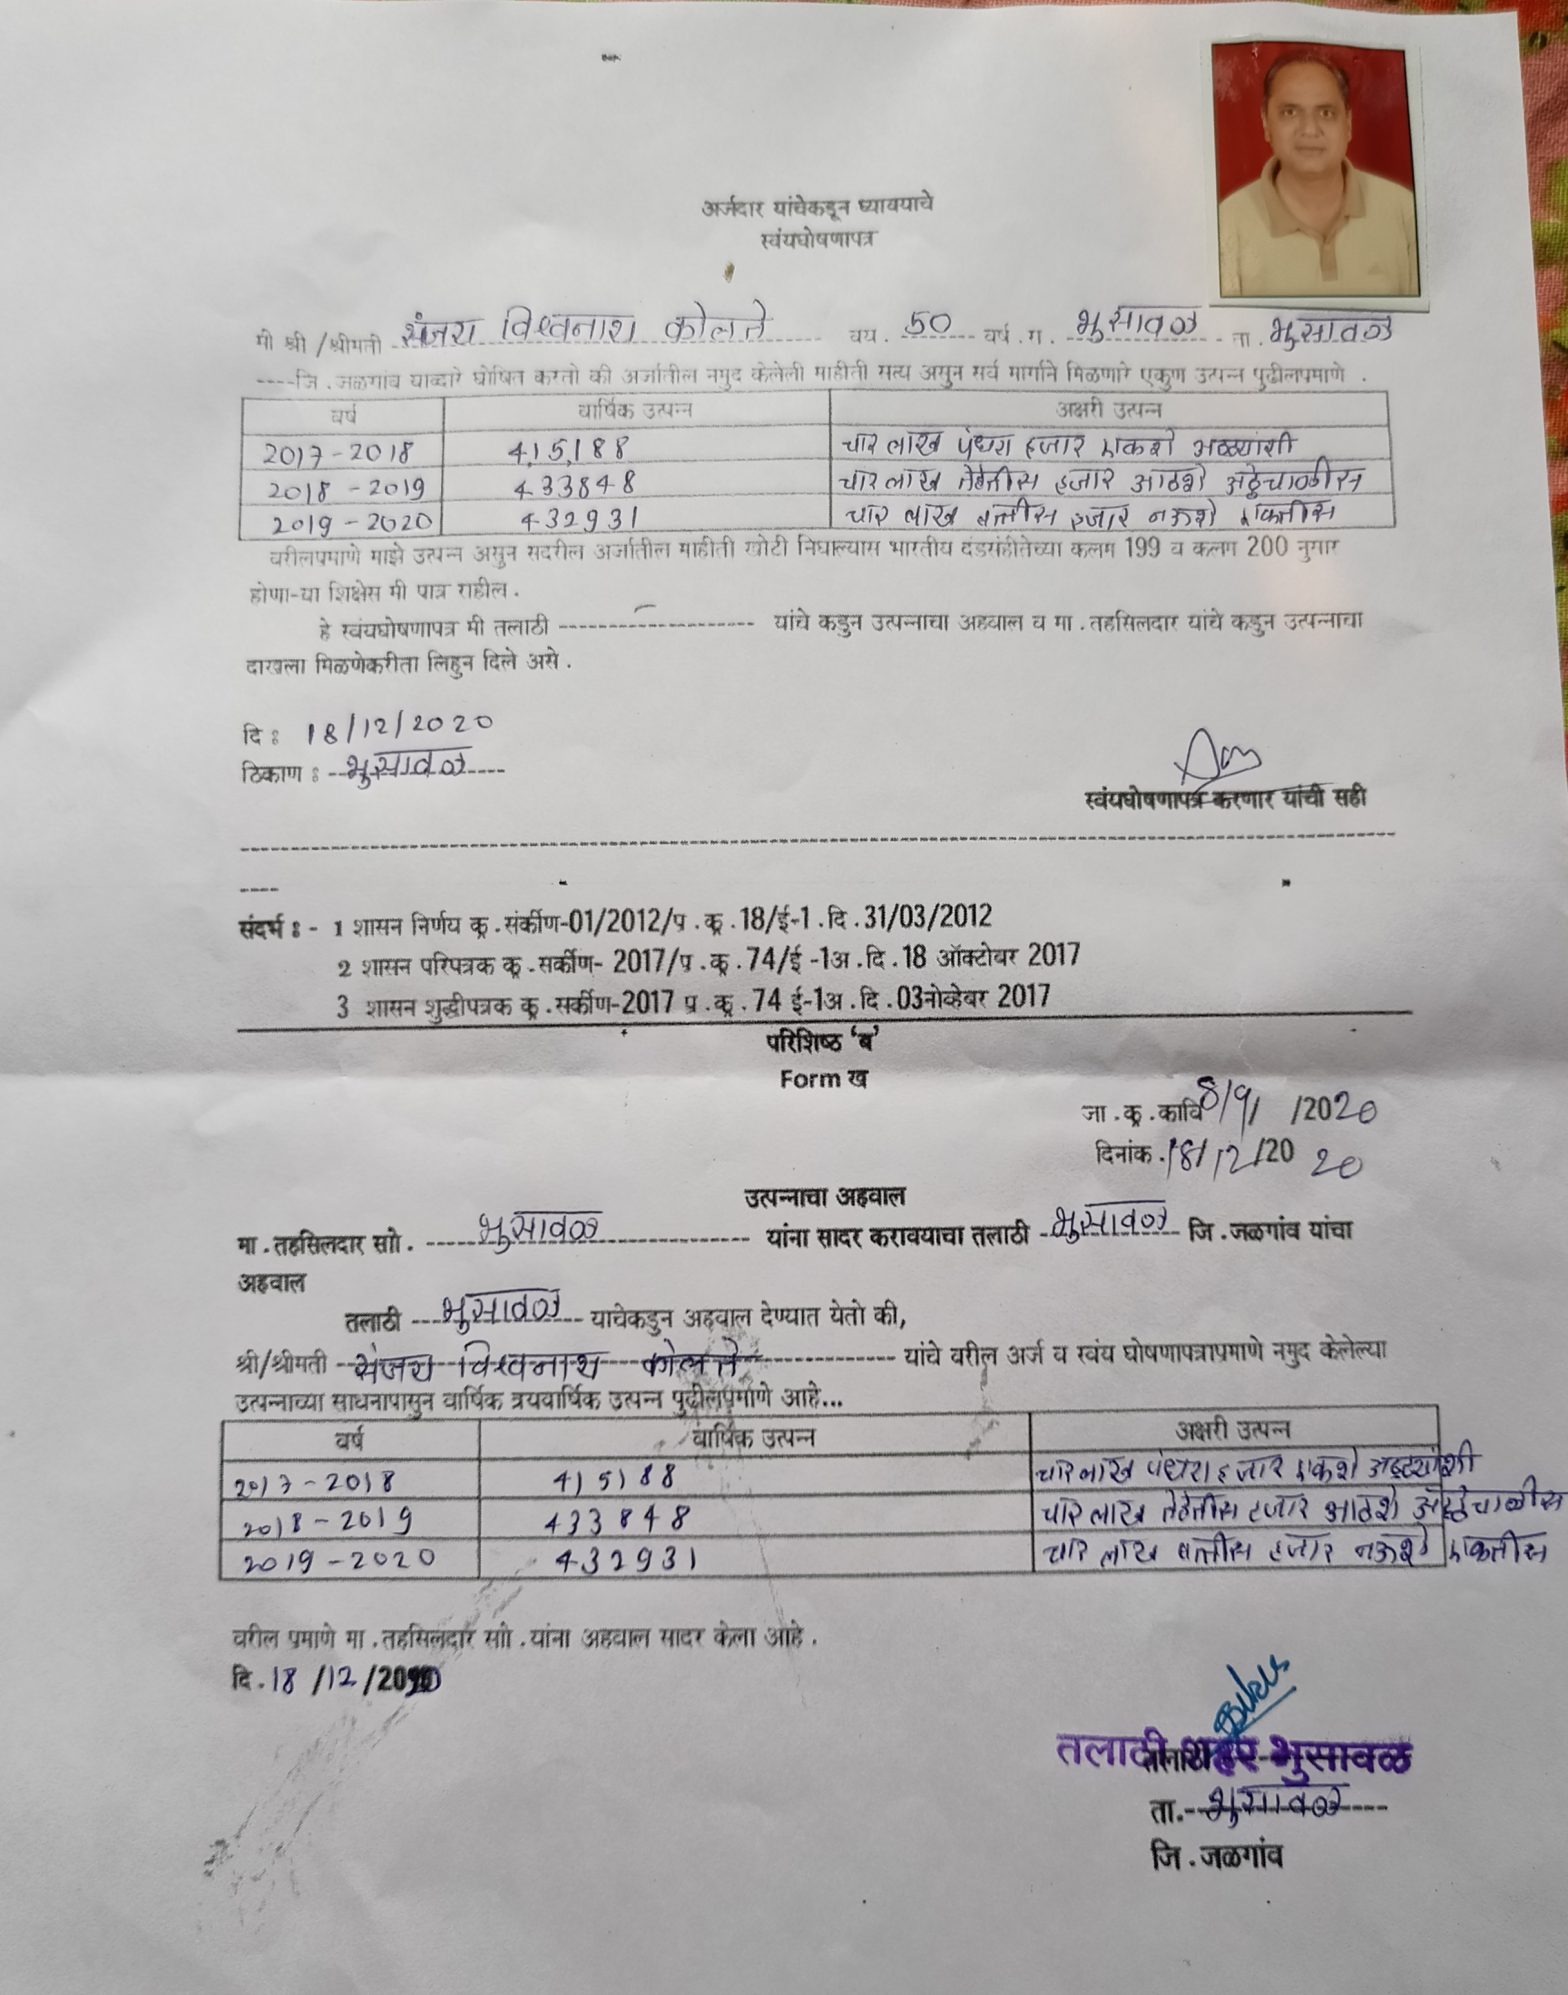 अर्जदार यांचेकडून घ्यावयाचे
स्वंयघोषणापत्र
मी श्री /श्रीमती संजय विश्वनाथ कोलते वय . 50 वर्ष . ग . भुसावळ ता . भुसावळ
----जि . जळगांव याव्दारे घोषित करतो की अर्जातील नमुद केलेली माहीती सत्य असुन सर्व मार्गाने मिळणारे एकुण उत्पन्न पुढीलप्रमाणे .
वर्ष वार्षिक उत्पन्न अक्षरी उत्पन्न
2017-2018 4,15,188 चार लाख पंधरा हजार एकशे अठ्यांशी
2018-2019 433848 चार लाख तेहेत्तीस हजार आठशे अठ्ठेचाळीस
2019-2020 432931 चार लाख बत्तीस हजार नऊशे एकत्तीस
वरीलप्रमाणे माझे उत्पन्न असुन सदरील अर्जातील माहीती खोटी निघाल्यास भारतीय दंडसंहीतेच्या कलम 199 व कलम 200 नुसार
होणा-या शिक्षेस मी पात्र राहील .
हे स्वंयघोषणापत्र मी तलाठी -------------------- यांचे कडुन उत्पन्नाचा अहवाल व मा . तहसिलदार यांचे कडुन उत्पन्नाचा
दाखला मिळणेकरीता लिहुन दिले असे .
दि : 18/12/2020
ठिकाण : भुसावळ
स्वंयघोषणापत्र करणार यांची सही
संदर्भ : - 1 शासन निर्णय क्र . संर्कीण-01/2012/प्र . क्र . 18/ई-1 . दि . 31/03/2012
2 शासन परिपत्रक क्र . सर्कीण- 2017/प्र . क्र . 74/ई -1अ . दि . 18 ऑक्टोबर 2017
3 शासन शुद्धीपत्रक क्र . सर्कीण-2017 प्र . क्र . 74 ई-1अ . दि . 03नोव्हेबर 2017
परिशिष्ठ ‘ब’
Form ख
जा . क्र . कावि 8/9/ /2020
दिनांक . 18/12/2020
उत्पन्नाचा अहवाल
मा . तहसिलदार सो . भुसावळ यांना सादर करावयाचा तलाठी भुसावळ जि . जळगांव यांचा
अहवाल
तलाठी भुसावळ याचेकडुन अहवाल देण्यात येतो की,
श्री/श्रीमती संजय विश्वनाथ कोलते यांचे वरील अर्ज व स्वंय घोषणापत्राप्रमाणे नमुद केलेल्या
उत्पन्नाच्या साधनापासुन वार्षिक त्रयवार्षिक उत्पन्न पुढीलप्रमाणे आहे...
वर्ष वार्षिक उत्पन्न अक्षरी उत्पन्न
2017-2018 415188 चार लाख पंधरा हजार एकशे अठ्यांशी
2018-2019 433848 चार लाख तेहेत्तीस हजार आठशे अठ्ठेचाळीस
2019-2020 432931 चार लाख बत्तीस हजार नऊशे एकत्तीस
वरील प्रमाणे मा . तहसिलदार सो . यांना अहवाल सादर केला आहे .
दि . 18 /12 /2020
तलाठी शहर भुसावळ
ता. भुसावळ
जि . जळगांव